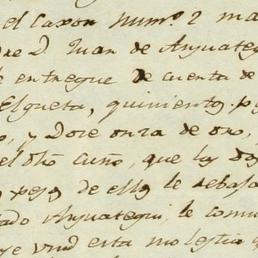 el Caxon Num.º 2 ma
re D. Juan de Anguateg
e entregue de cuenta de
Elgueta, quinientos p.
o, y Doce onza de oro,
el dho cuño, que los do
pesos de ello le rebaja
ado Anguategui, le comu
ye vmd esta molestia